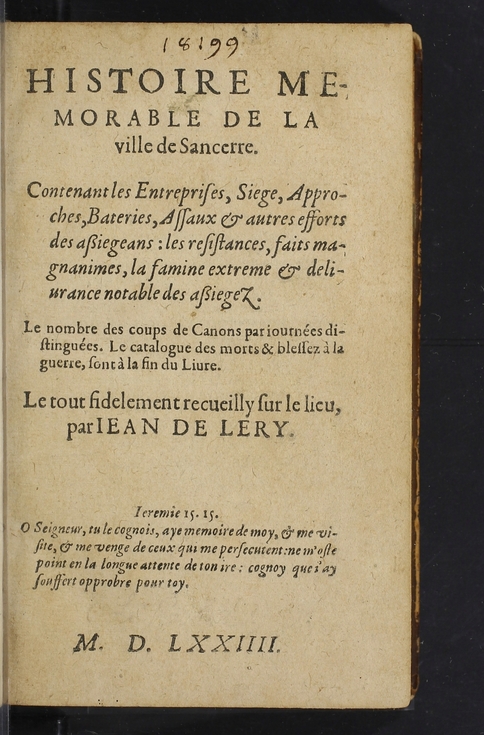 18199
HISTOIRE ME-
MORABLE DE LA
ville de Sancerre.
Contenant les Entrepriſes, Siege, Appro-
ches, Bateries, Aſſaux & autres efforts
des aßiegeans : les reſiſtances, faits ma-
gnanimes, la famine extreme & deli-
urance notable des aßiegez.
Le nombre des coups de Canons par iournées di-
ſtinguées. Le catalogue des morts & bleſſez à la
guerre, ſont à la fin du Liure.
Le tout fidelement recueilly ſur le lieu,
par IEAN DE LERY.
Ieremie 15. 15.
O Seigneur, tu le cognois, aye memoire de moy, & me vi-
ſite, & me venge de ceux qui me perſecutent: ne m'oſte
point en la longue attente de ton ire : cognoy que i'ay
ſouffert opprobre pour toy.
M. D. LXXIIII.